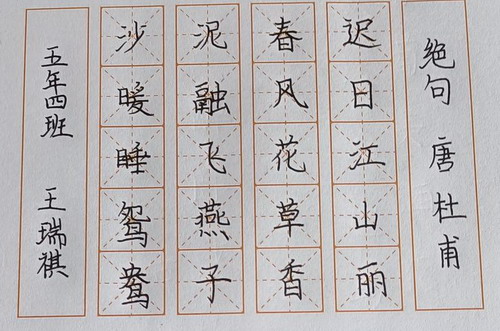 绝句 唐 杜甫
迟日江山丽
春风花草香
泥融飞燕子
沙暖睡鸳鸯
五年四班 王瑞祺